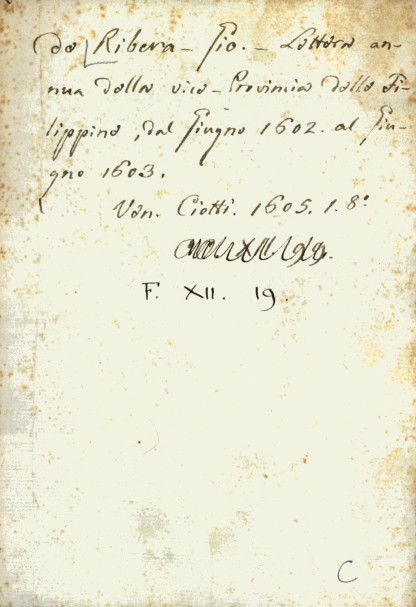 de Ribera - Gio. - Lettera an-
nua della vice-Provincia delle Fi-
lippine, dal Giugno 1602. al Giu-
gno 1603.
Ven. Ciotti. 1605. 1. 8°
F. XII. 19.
C